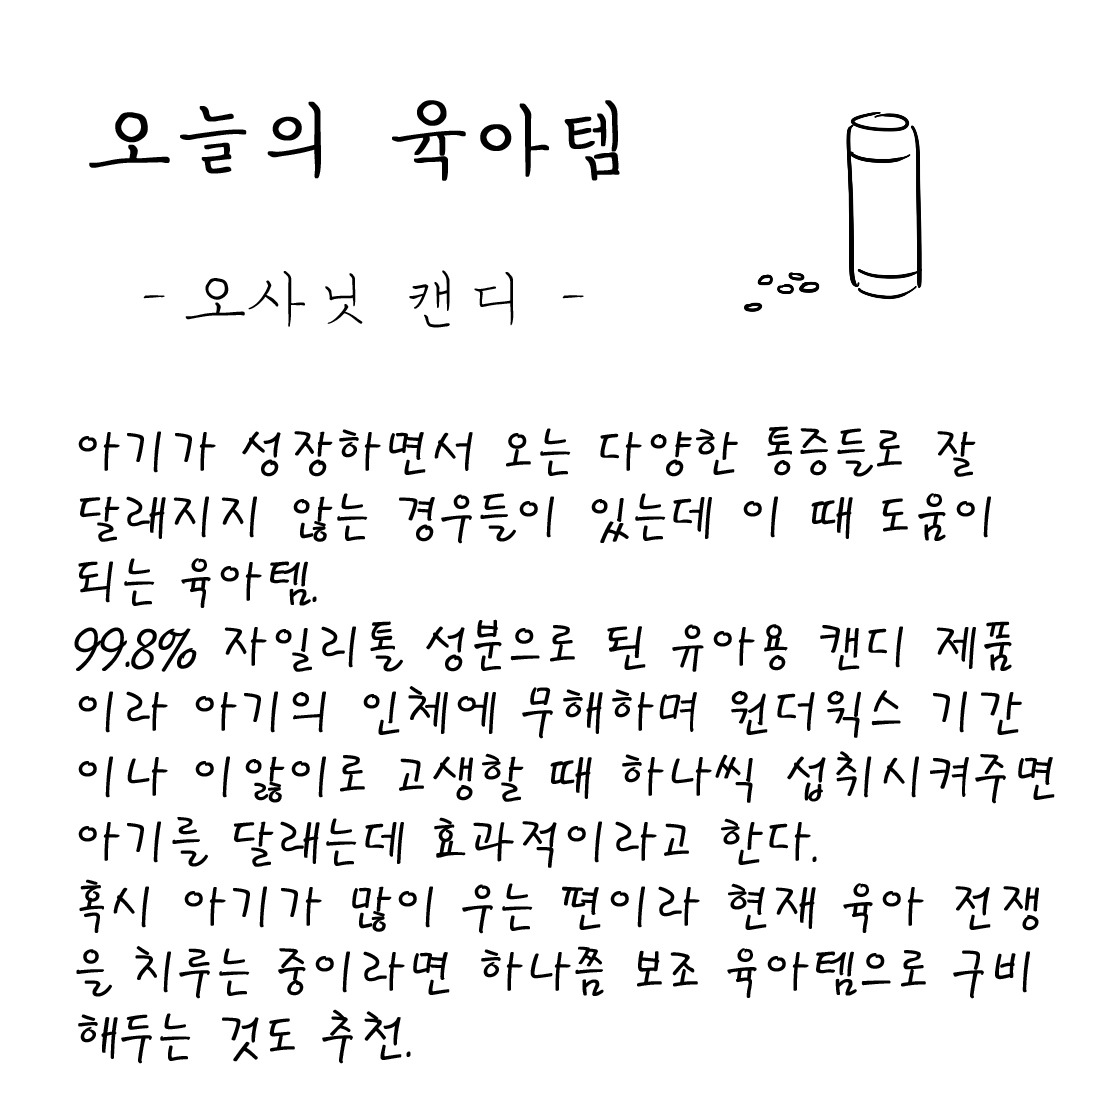 오늘의 육아템
- 오사닛 캔디 -
아기가 성장하면서 오는 다양한 통증들로 잘
달래지지 않는 경우들이 있는데 이 때 도움이
되는 육아템.
99.8% 자일리톨 성분으로 된 유아용 캔디 제품
이라 아기의 인체에 무해하며 원더윅스 기간
이나 이앓이로 고생할 때 하나씩 섭취시켜주면
아기를 달래는데 효과적이라고 한다.
혹시 아기가 많이 우는 편이라 현재 육아 전쟁
을 치루는 중이라면 하나쯤 보조 육아템으로 구비
해두는 것도 추천.